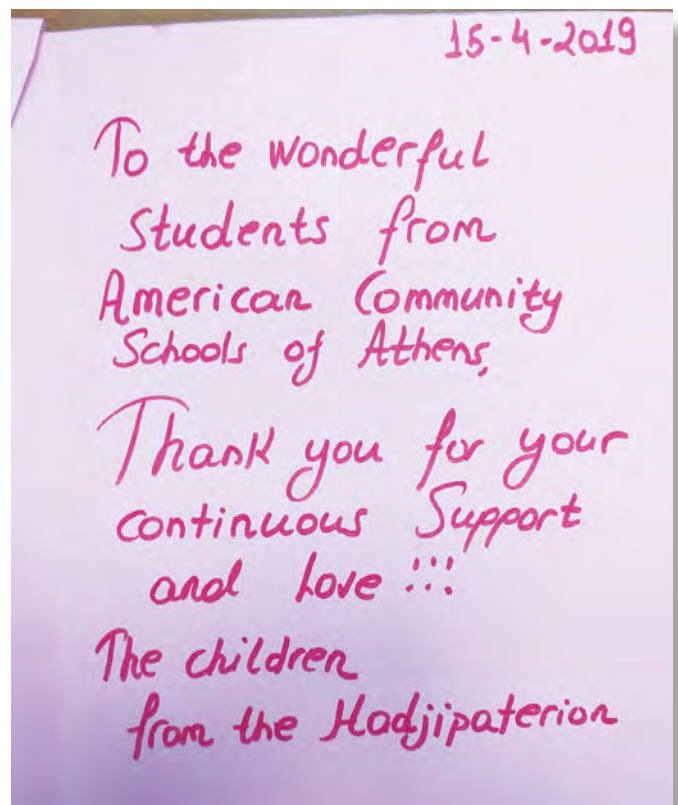 15-4-2019
To the wonderful
Students from
American Community
Schools of Athens,
Thank you for your
continuous Support
and Love!!!
The children
from the Hadjipaterion